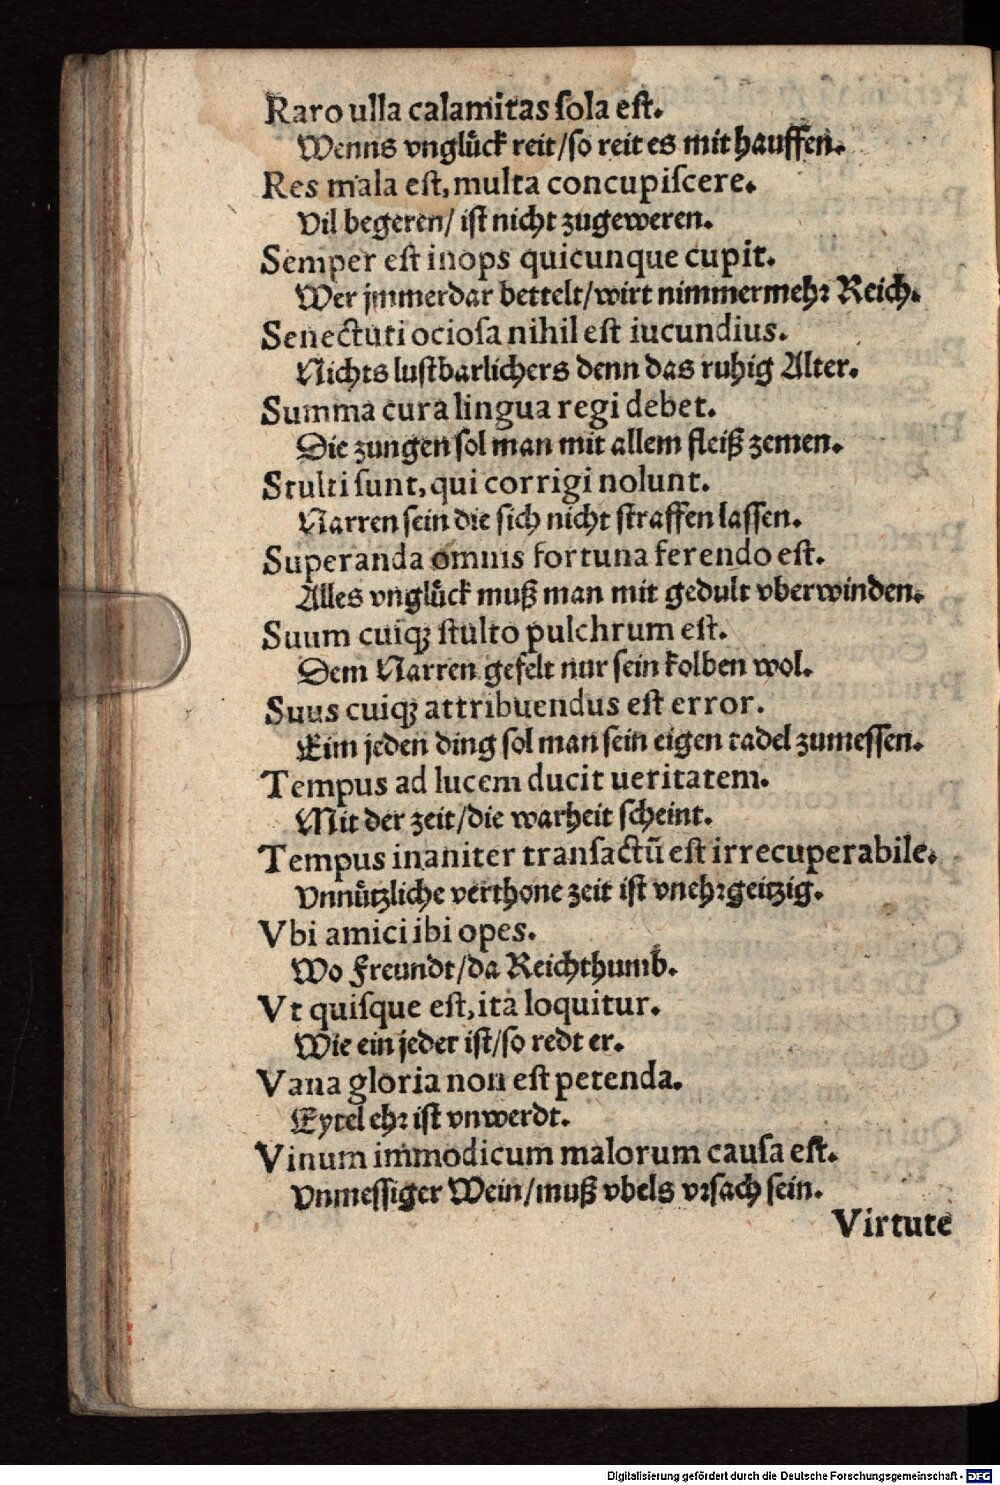 Raro ulla calamitas ſola eſt.
Wenns vnglück reit/ſo reit es mit hauffen.
Res mala eſt, multa concupiſcere.
Vil begeren/ iſt nicht zugeweren.
Semper eſt inops quicunque cupit.
Wer jmmerdar bettelt/wirt nimmermehꝛ Reich.
Senectuti ocioſa nihil eſt iucundius.
Nichts luſtbarlichers denn das ruhig Alter.
Summa cura lingua regi debet.
Die zungen ſol man mit allem fleiß zemen.
Stulti ſunt, qui corrigi nolunt.
Narren ſein die ſich nicht ſtraffen laſſen.
Superanda omnis fortuna ferendo eſt.
Alles vnglück muß man mit gedult vberwinden.
Suum cuiqꝫ ſtulto pulchrum eſt.
Dem Narren gefelt nur ſein kolben wol.
Suus cuiqꝫ attribuendus eſt error.
Eim jeden ding ſol man ſein eigen tadel zumeſſen.
Tempus ad lucem ducit ueritatem.
Mit der zeit/die warheit ſcheint.
Tempus inaniter tranſactũ eſt irrecuperabile.
Vnnützliche verthone zeit iſt vnehꝛgeitzig.
Vbi amici ibi opes.
Wo Freundt/da Reichthumb.
Vt quiſque eſt, ita loquitur.
Wie ein jeder iſt/ſo redt er.
Vana gloria non eſt petenda.
Eytel ehꝛ iſt vnwerdt.
Vinum immodicum malorum cauſa eſt.
Vnmeſſiger Wein/muß vbels vꝛſach ſein.
Virtute
Digitalisierung gefördert durch die Deutsche Forschungsgemeinschaft - DFG